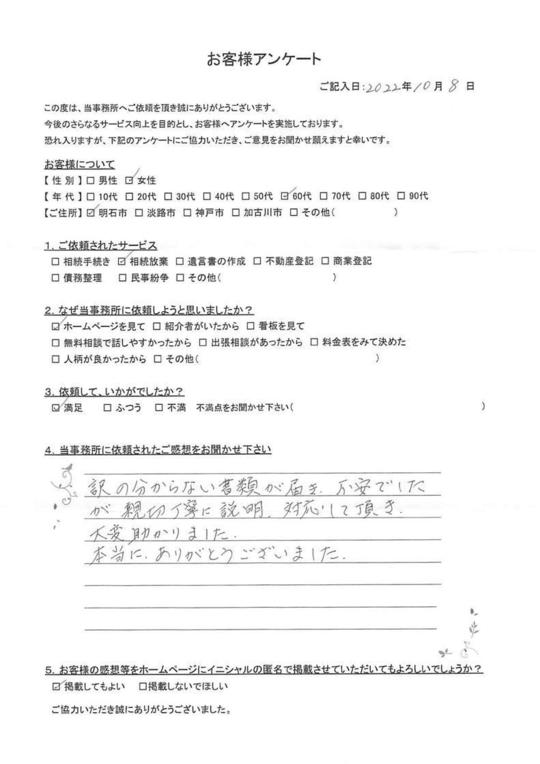 お客様アンケート
ご記入日:2022年10月8日
この度は、当事務所へご依頼を頂き誠にありがとうございます。
今後のさらなるサービス向上を目的とし、お客様へアンケートを実施しております。
恐れ入りますが、下記のアンケートにご協力いただき、ご意見をお聞かせ願えますと幸いです。
お客様について
【性別】□男性 ☑女性
【年代】□10代 □20代 □30代 □40代 □50代 ☑60代 □70代 □80代 □90代
【ご住所】☑明石市 □淡路市 □神戸市 □加古川市 □その他( )
1. ご依頼されたサービス
□相続手続き ☑相続放棄 □遺言書の作成 □不動産登記 □商業登記
□債務整理 □民事紛争 □その他( )
2. なぜ当事務所に依頼しようと思いましたか?
☑ホームページを見て □紹介者がいたから □看板を見て
□無料相談で話しやすかったから □出張相談があったから □料金表をみて決めた
□人柄が良かったから □その他( )
3. 依頼して、いかがでしたか?
☑満足 □ふつう □不満 不満点をお聞かせ下さい( )
4. 当事務所に依頼されたご感想をお聞かせ下さい
訳の分からない書類が届き、不安でした
が親切丁寧に説明、対応して頂き、
大変助かりました。
本当に、ありがとうございました。
5. お客様の感想等をホームページにイニシャルの匿名で掲載させていただいてもよろしいでしょうか?
☑掲載してもよい □掲載しないでほしい
ご協力いただき誠にありがとうございました。